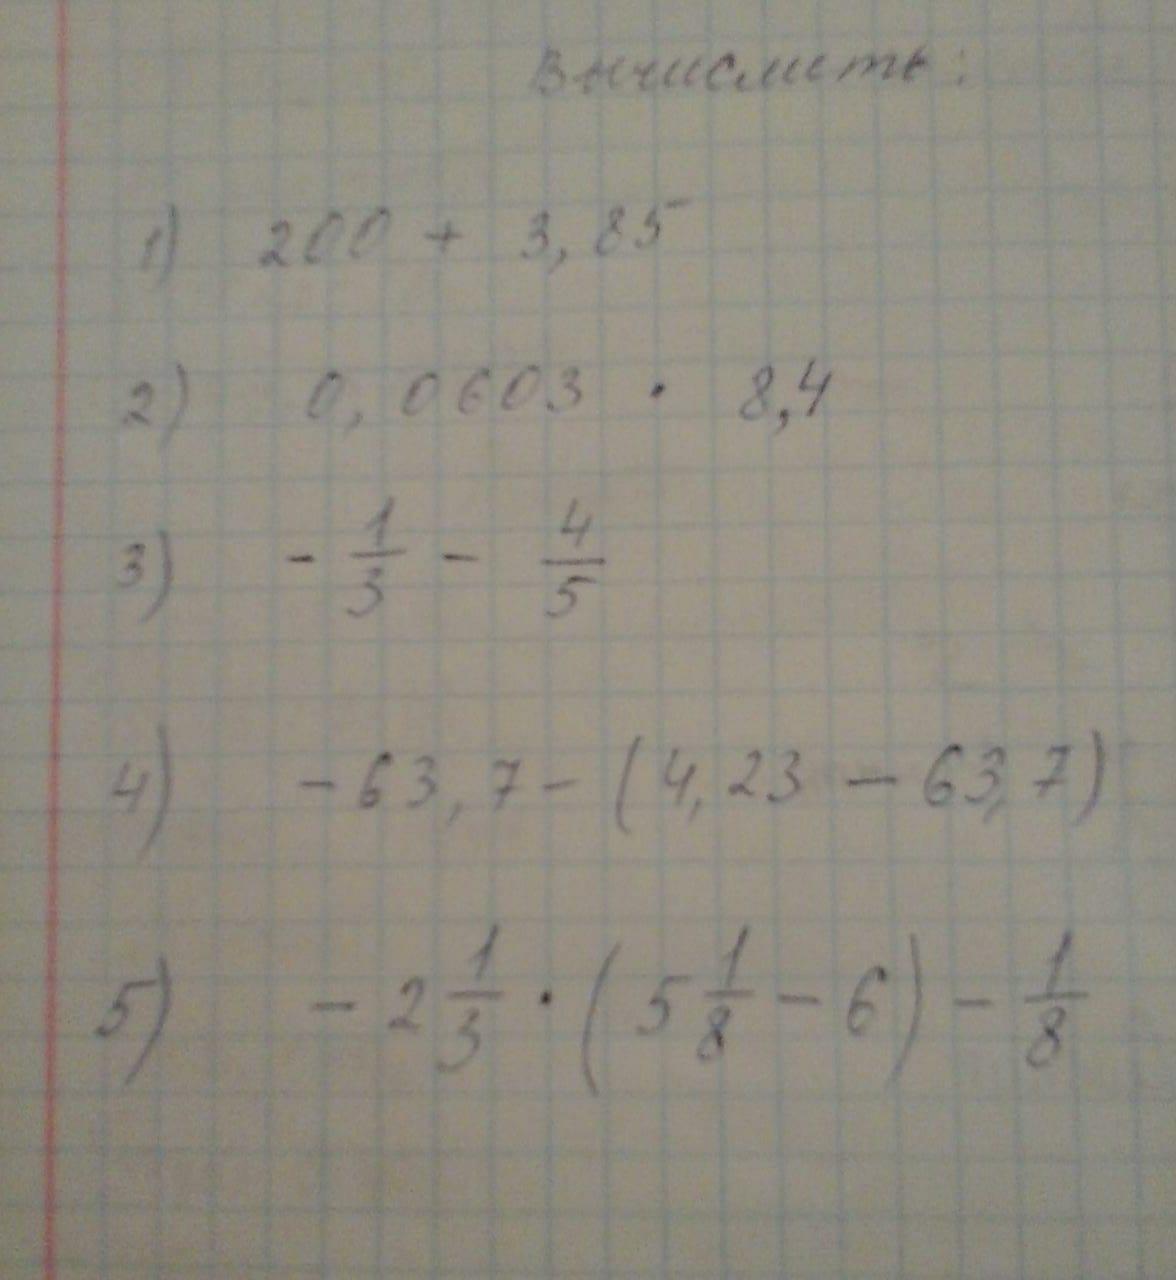 Вычислить:
1) 200 + 3,85
2) 0,0603 · 8,4
3) - 1/3 - 4/5
4) - 63,7 - (4,23 - 63,7)
5) - 2 1/3 · (5 1/8 - 6) - 1/8